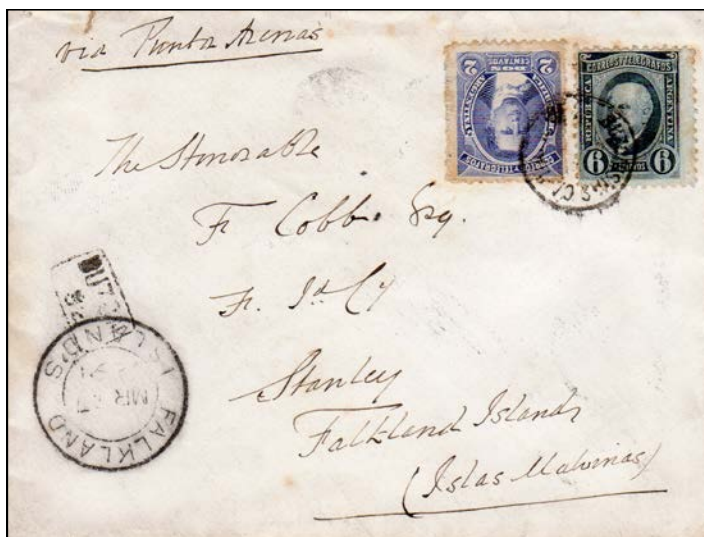 via Punta Arenas
2 DOS CENTAVOS 2
ARGENTINA
CORREOS Y TELEGRAFOS
CORREOS Y TELEGRAFOS
REPUBLICA ARGENTINA
6 CENTAVOS 6
The Honorable
F. Cobb. Esq.
F. Id Cy
Stanley
Falkland Islands
(Islas Malvinas)
FALKLAND ISLAND'S
MR